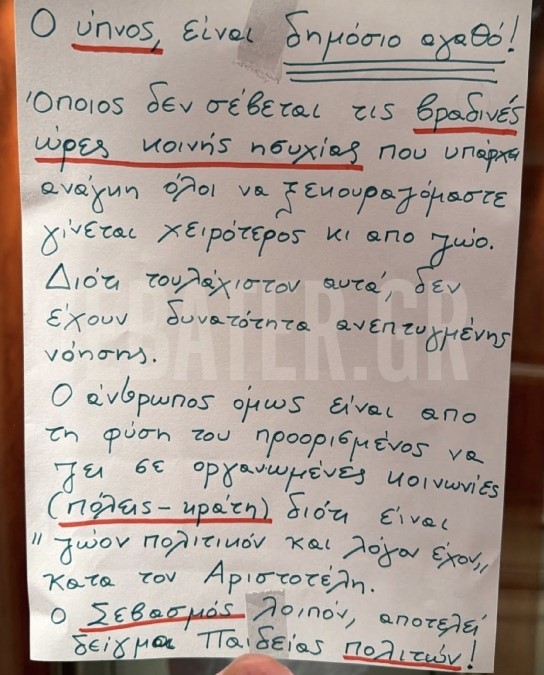 Ο ύπνος, είναι δημόσιο αγαθό!
Όποιος δεν σέβεται τις βραδινές
ώρες κοινής ησυχίας που υπάρχει
ανάγκη όλοι να ξεκουραζόμαστε
γίνεται χειρότερος κι απο ζώο.
Διότι τουλάχιστον αυτά, δεν
έχουν δυνατότητα ανεπτυγμένης
νόησης.
Ο άνθρωπος όμως είναι απο
τη φύση του προορισμένος να
ζει σε οργανωμένες κοινωνίες
(πόλεις-κράτη) διότι είναι
"ζώον πολιτικόν και λόγον έχον,,
κατα τον Αριστοτέλη.
Ο Σεβασμός λοιπόν, αποτελεί
δείγμα Παιδείας πολιτών!
DEBATER.GR